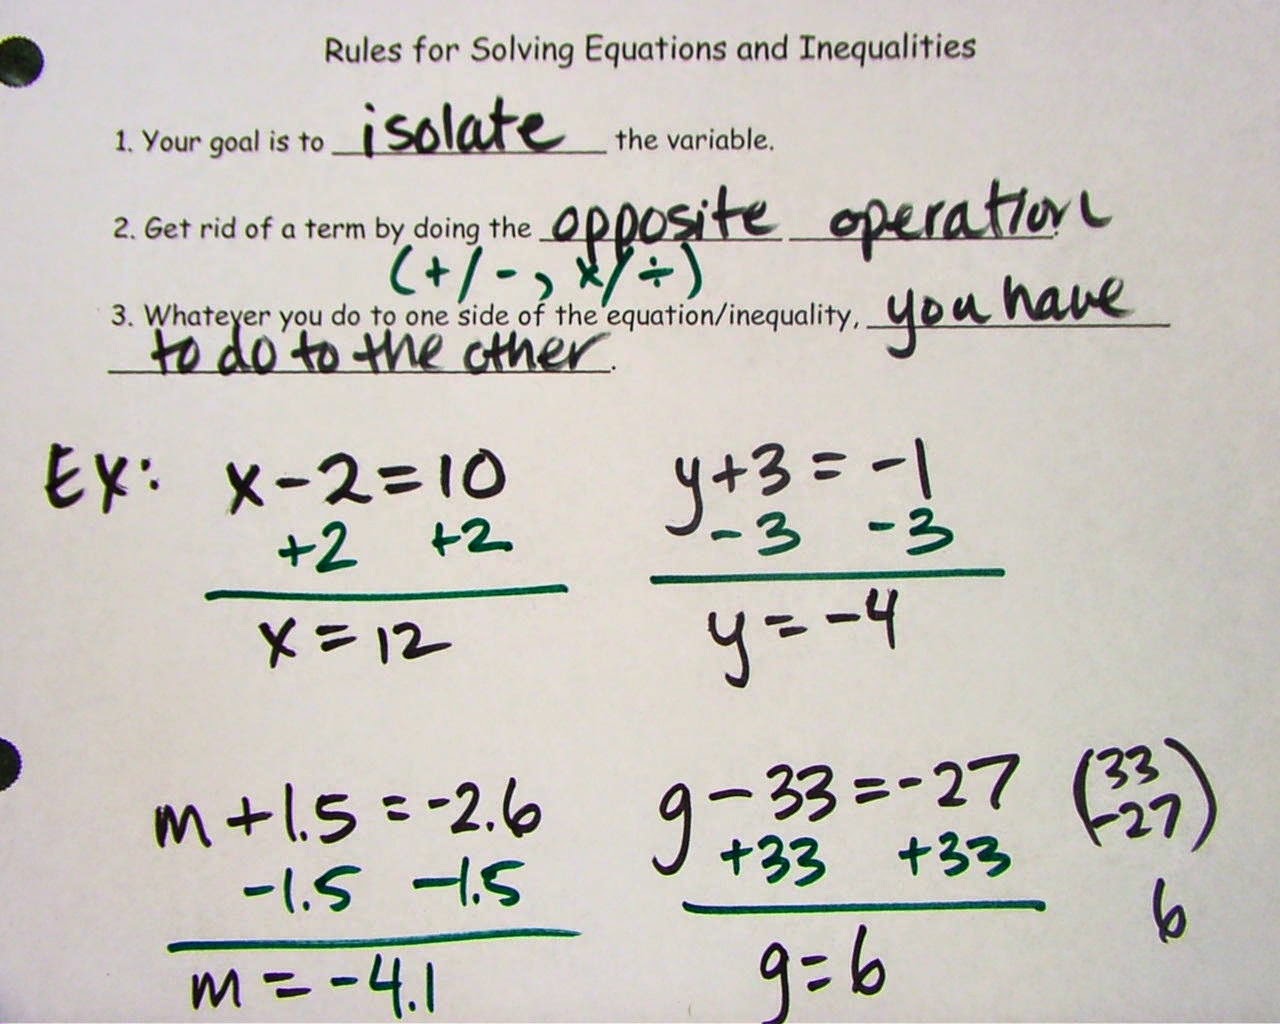 Rules for Solving Equations and Inequalities
1. Your goal is to isolate the variable.
2. Get rid of a term by doing the opposite operation.
(+/-, x/÷)
3. Whatever you do to one side of the equation/inequality, you have
to do to the other.
EX: x-2=10 y+3=-1
+2 +2 -3 -3
x=12 y=-4
m+1.5=-2.6 g-33=-27 (33
-1.5 -1.5 +33 +33 -27)
m=-4.1 g=6 6